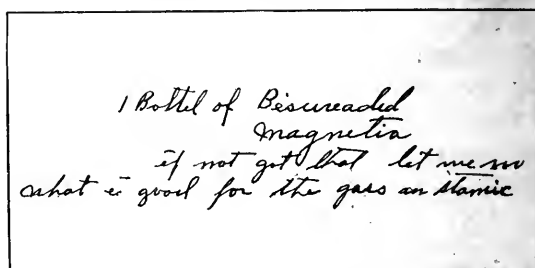 1 Bottel of Bisureaded
Magnetia
if not got that let me no
what is good for the gass an stamic